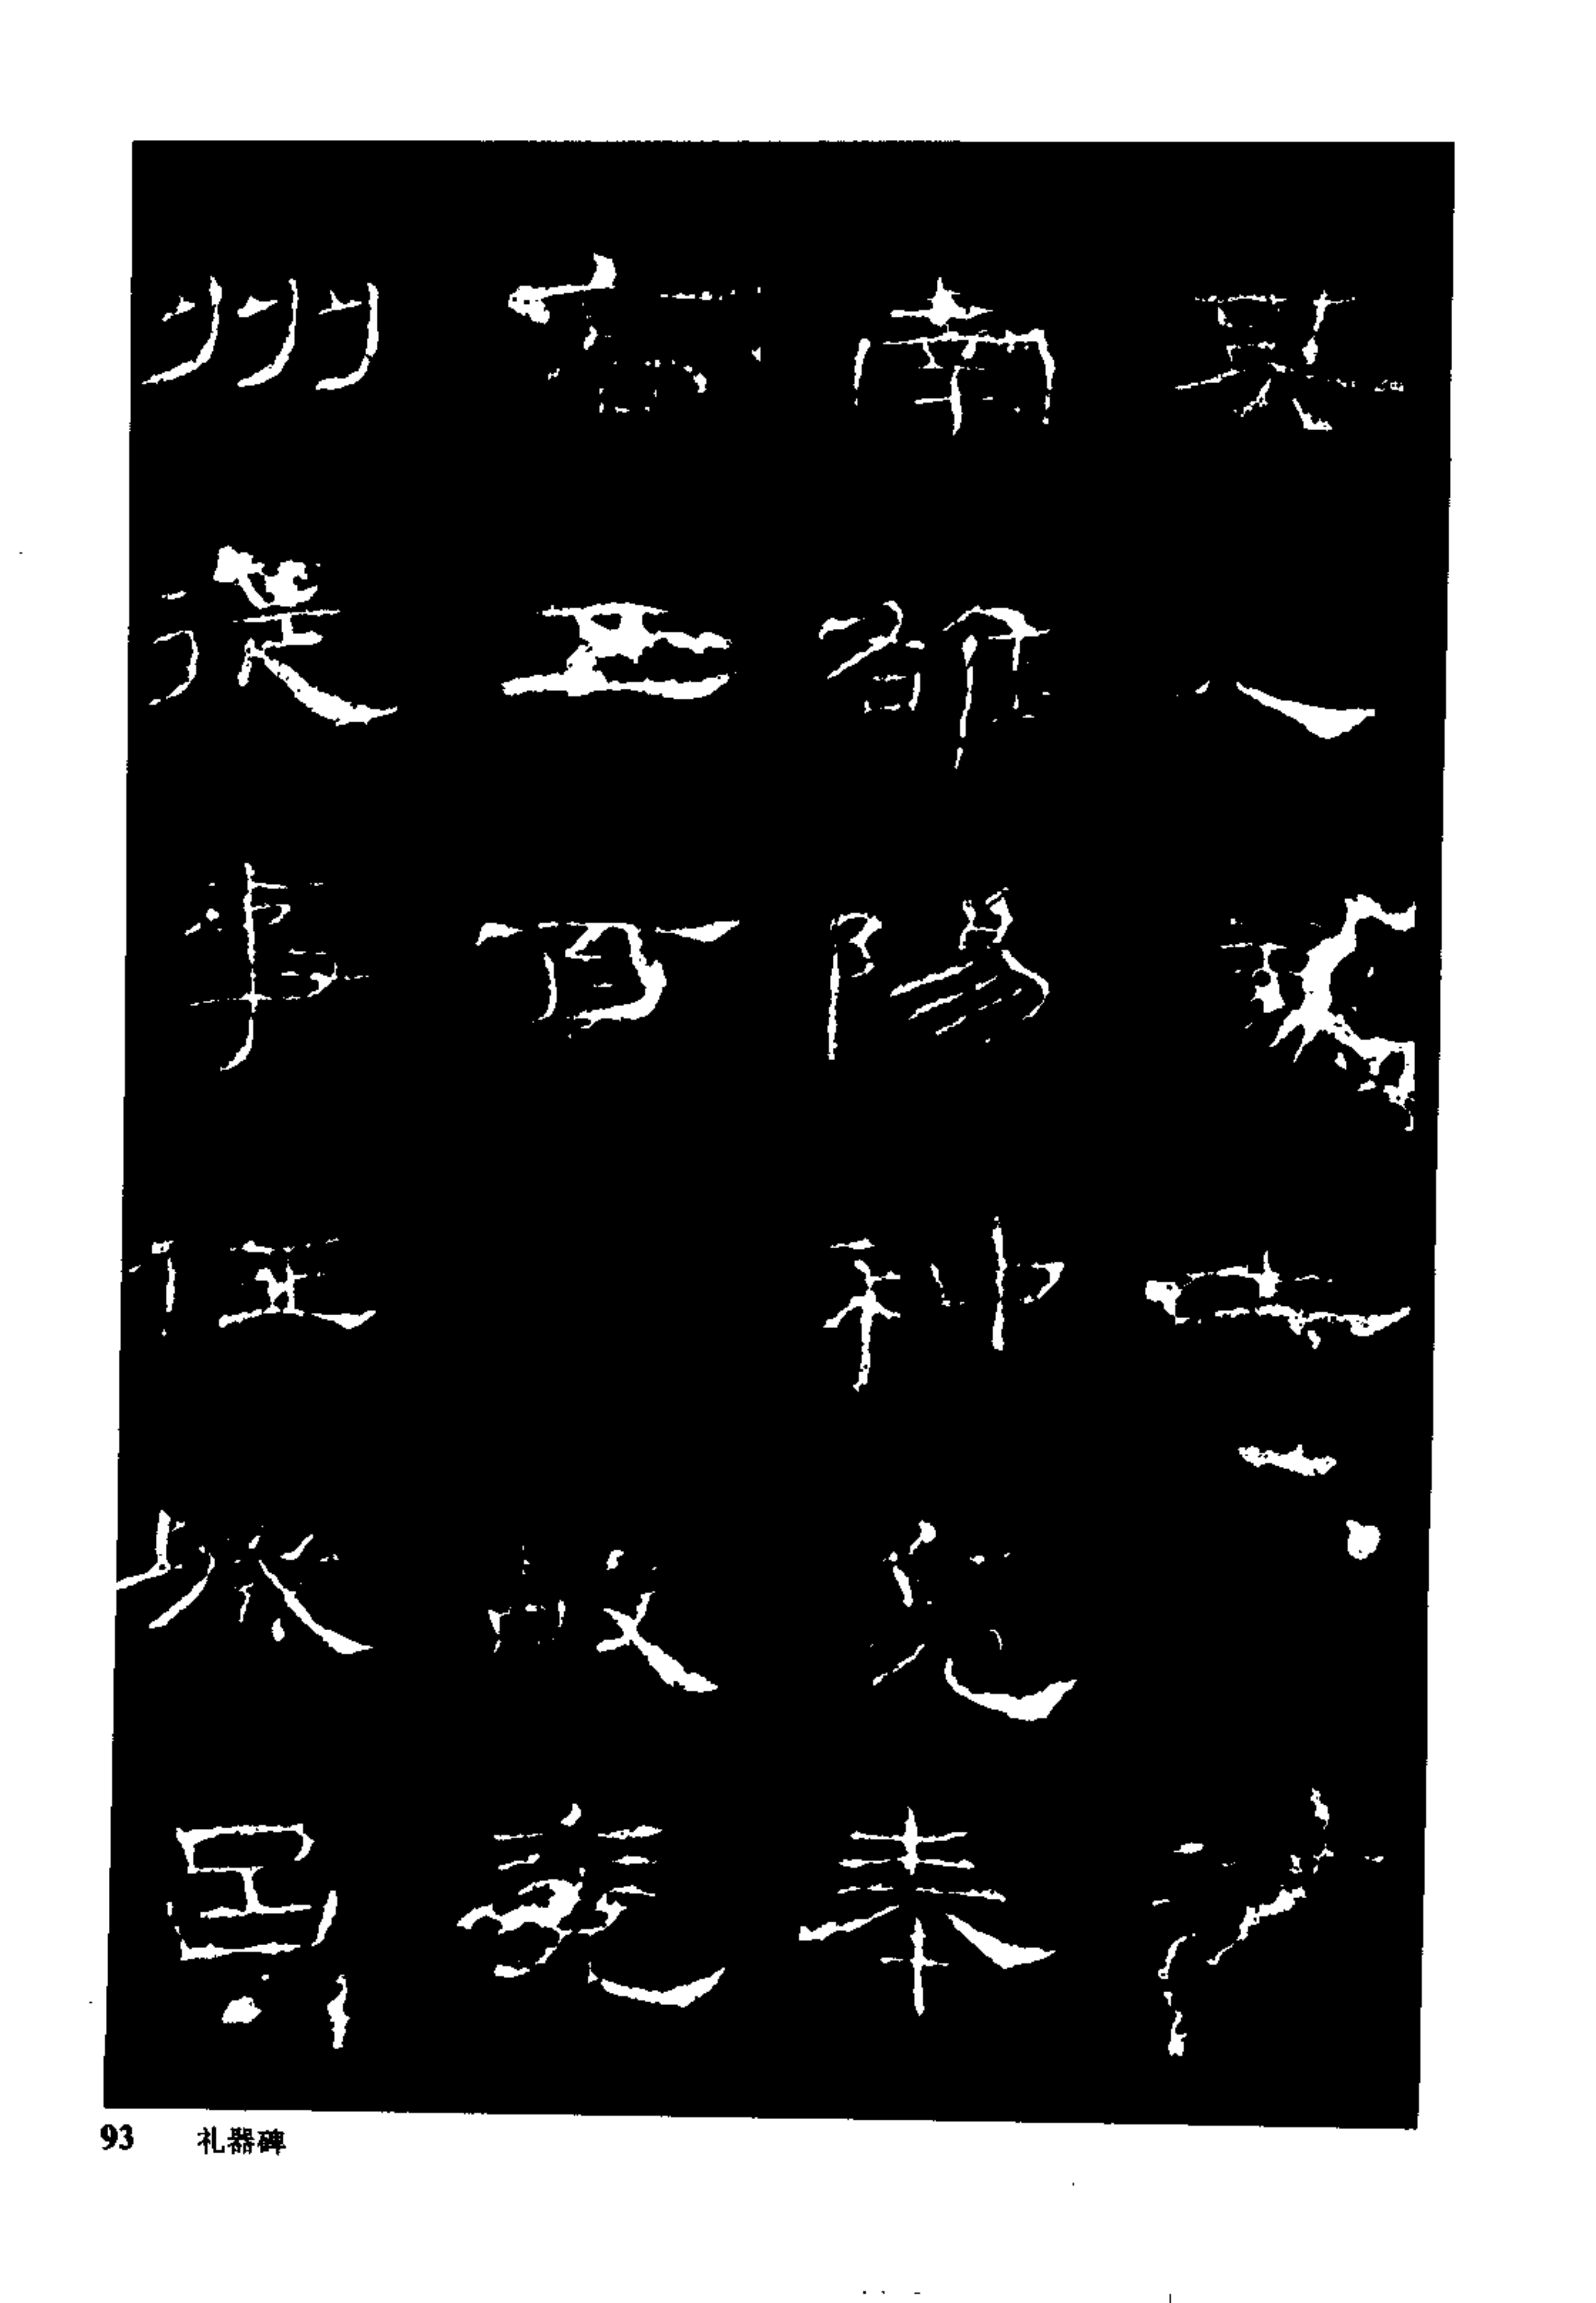 其人處士河
南雒陽种亮奉
高五百故兗
州從事任城呂
93 礼器碑